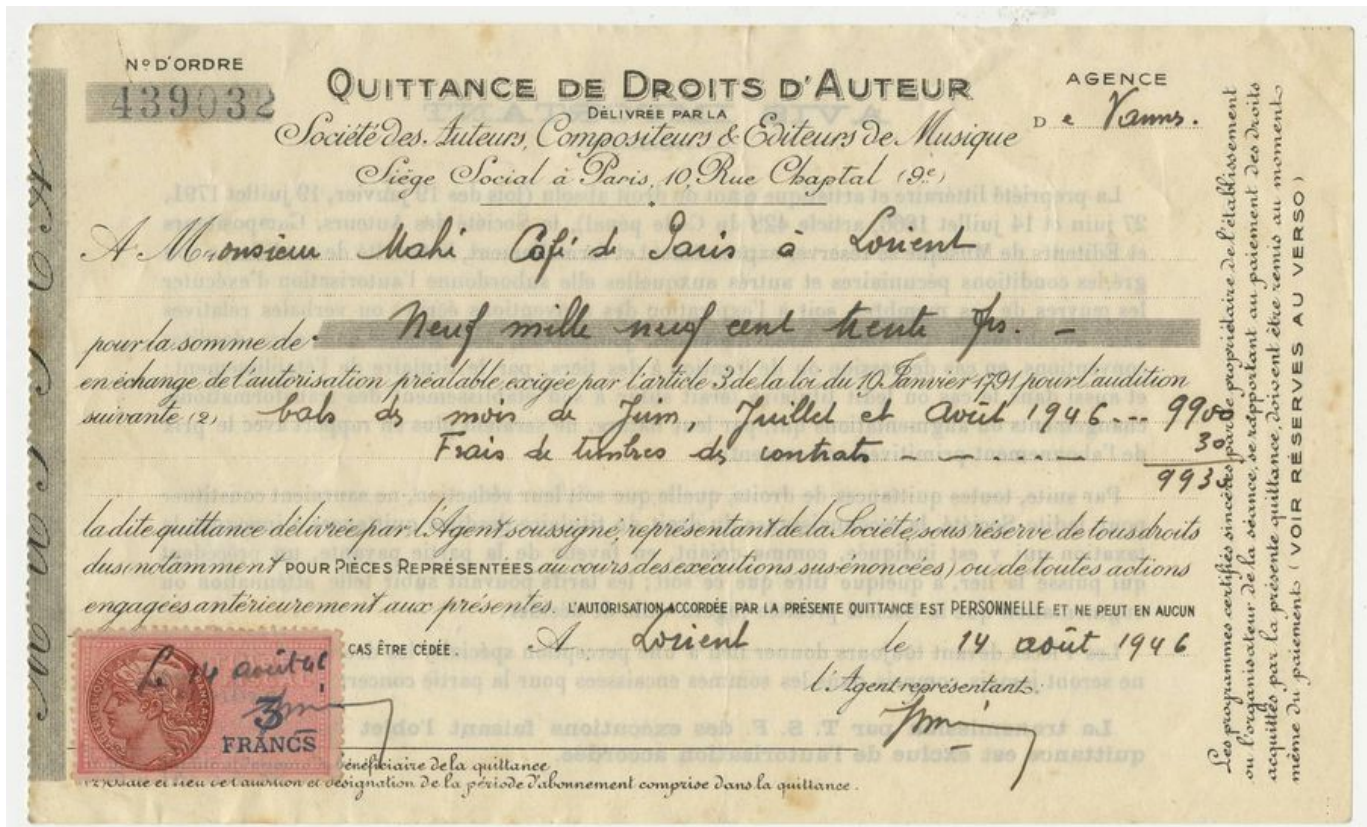 N° D'ORDRE
439032
QUITTANCE DE DROITS D'AUTEUR
DÉLIVRÉE PAR LA
Société des Auteurs, Compositeurs & Editeurs de Musique
Siège Social à Paris, 10 Rue Chaptal (9e)
AGENCE
De Vannes.
A Monsieur Mahi Café de Paris à Lorient
pour la somme de Neuf mille neuf cent trente frs. -
en échange de l'autorisation préalable exigée par l'article 3 de la loi du 10 Janvier 1791 pour l'audition
suivante (2) bals des mois de Juin, Juillet et Août 1946 --- 9900
Frais de timbres des contrats - - - - 30
9930
la dite quittance délivrée par l'Agent soussigné, représentant de la Société, sous réserve de tous droits
dus (notamment POUR PIÈCES REPRÉSENTÉES au cours des exécutions sus-énoncées) ou de toutes actions
engagées antérieurement aux présentes. L'AUTORISATION ACCORDÉE PAR LA PRÉSENTE QUITTANCE EST PERSONNELLE ET NE PEUT EN AUCUN
CAS ÊTRE CÉDÉE. A Lorient le 14 août 1946
l'Agent représentant.
Le 14 août 46
3
FRANCS
bénéficiaire de la quittance.
(2) Date et lieu de l'audition et désignation de la période d'abonnement comprise dans la quittance.
Les programmes certifiés sincères par le propriétaire de l'établissement
ou l'organisateur de la séance, se rapportant au paiement des droits
acquittés par la présente quittance, doivent être remis au moment
même du paiement (VOIR RÉSERVES AU VERSO)